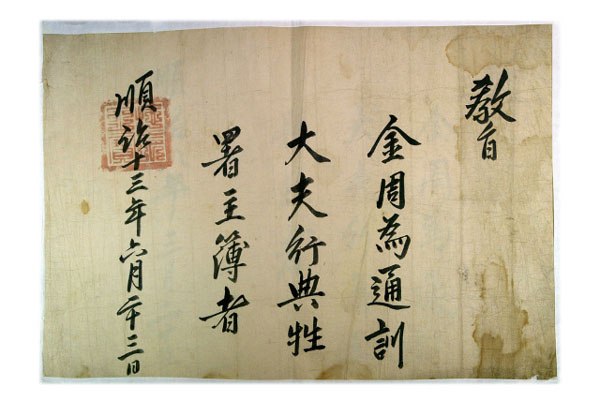 教旨
金周為通訓
大夫行典牲
署主簿者
順治十三年六月二十三日